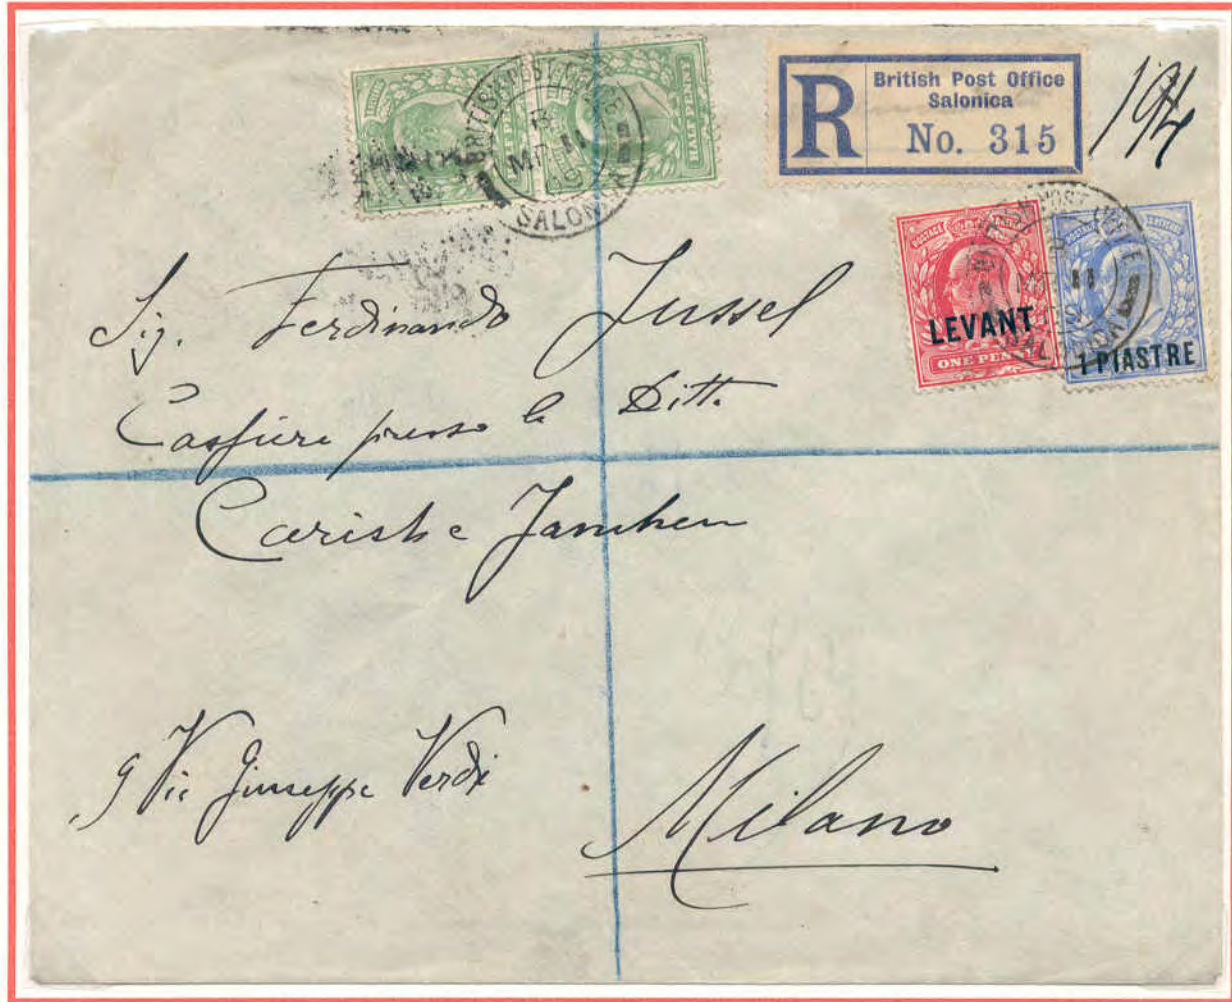 HALF PENNY
BRITISH POST OFFICE
SALONICA
R
British Post Office
Salonica
No. 315
194
POSTAGE
LEVANT
ONE PENNY
1 PIASTRE
Sig. Ferdinando Jussel
Cassiere presso la Ditta
9 Via Giuseppe Verdi
Milano